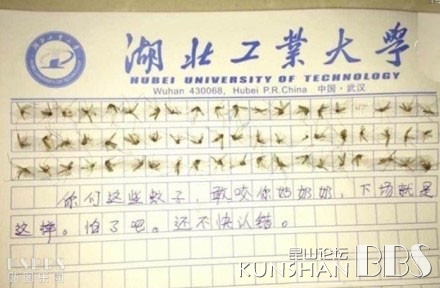 湖北工業大學
HUBEI UNIVERSITY OF TECHNOLOGY
Wuhan 430068, Hubei P.R.China 中国·武汉
你们这些蚊子，敢咬你姑奶奶，下场就是
这样。怕了吧。还不快认错。
昆山论坛
KUNSHAN BBS